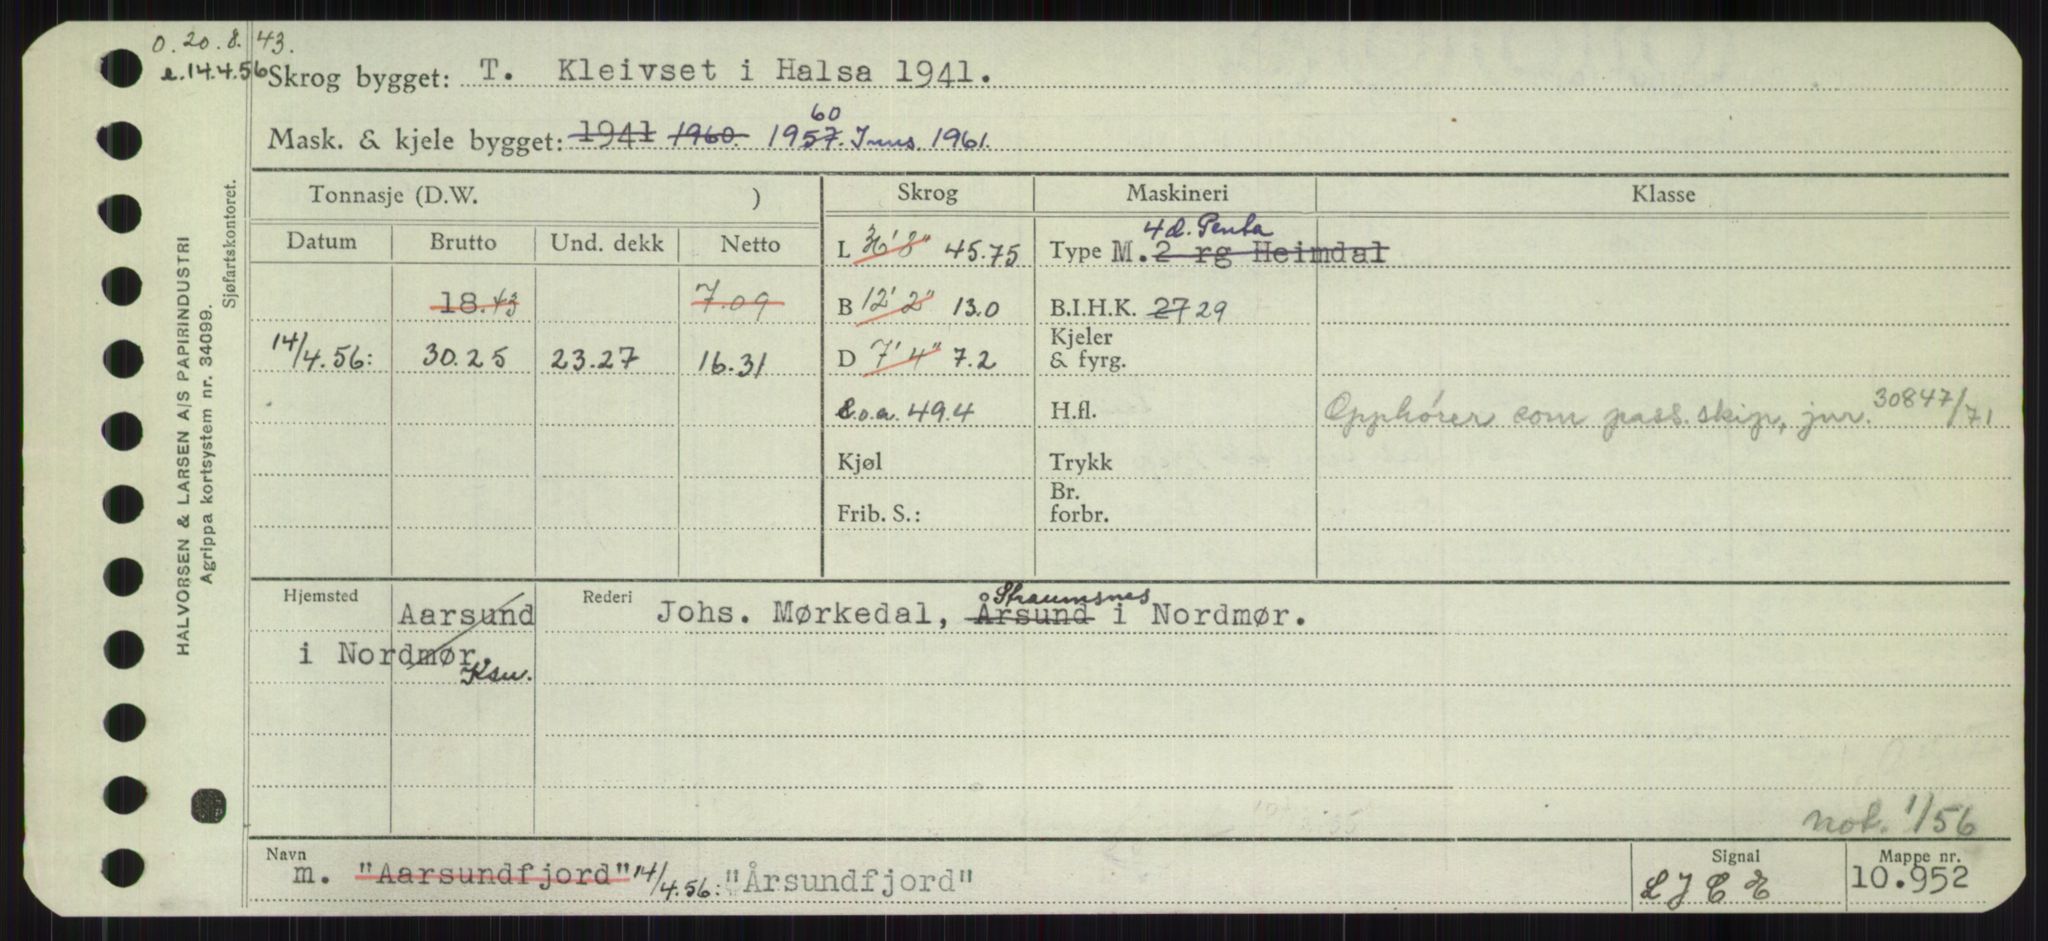 o. 20.8.43.
e. 14.4.56
Skrog bygget: T. Kleivset i Halsa 1941.
60
Mask. & kjele bygget: 1941 1960. 1957. Inns. 1961.
Tonnasje (D.W. ) Skrog Maskineri Klasse
4 d. Penta
Datum Brutto Und. dekk Netto L 36' 8" 45.75 Type M. 2 rg Heimdal
18.43 7.09 B 12' 2" 13.0 B.I.H.K. 27 29
14/4.56: 30.25 23.27 16.31 D 7' 4" 7.2 Kjeler & fyrg.
L.o.a. 49.4 H.fl. Opphører som pass.skip, jnr. 30847/71
Kjøl Trykk
Frib. S.: Br. forbr.
Hjemsted Aarsund Rederi Johs. Mørkedal, Årsund Straumsnes i Nordmør.
i Nordmør.
Ksu.
not. 1/56
Navn m. "Aarsundfjord" 14/4.56: "Årsundfjord" Signal LJCE Mappe nr. 10.952
HALVORSEN & LARSEN A/S PAPIRINDUSTRI
Agrippa kortsystem nr. 34099.
Sjøfartskontoret.